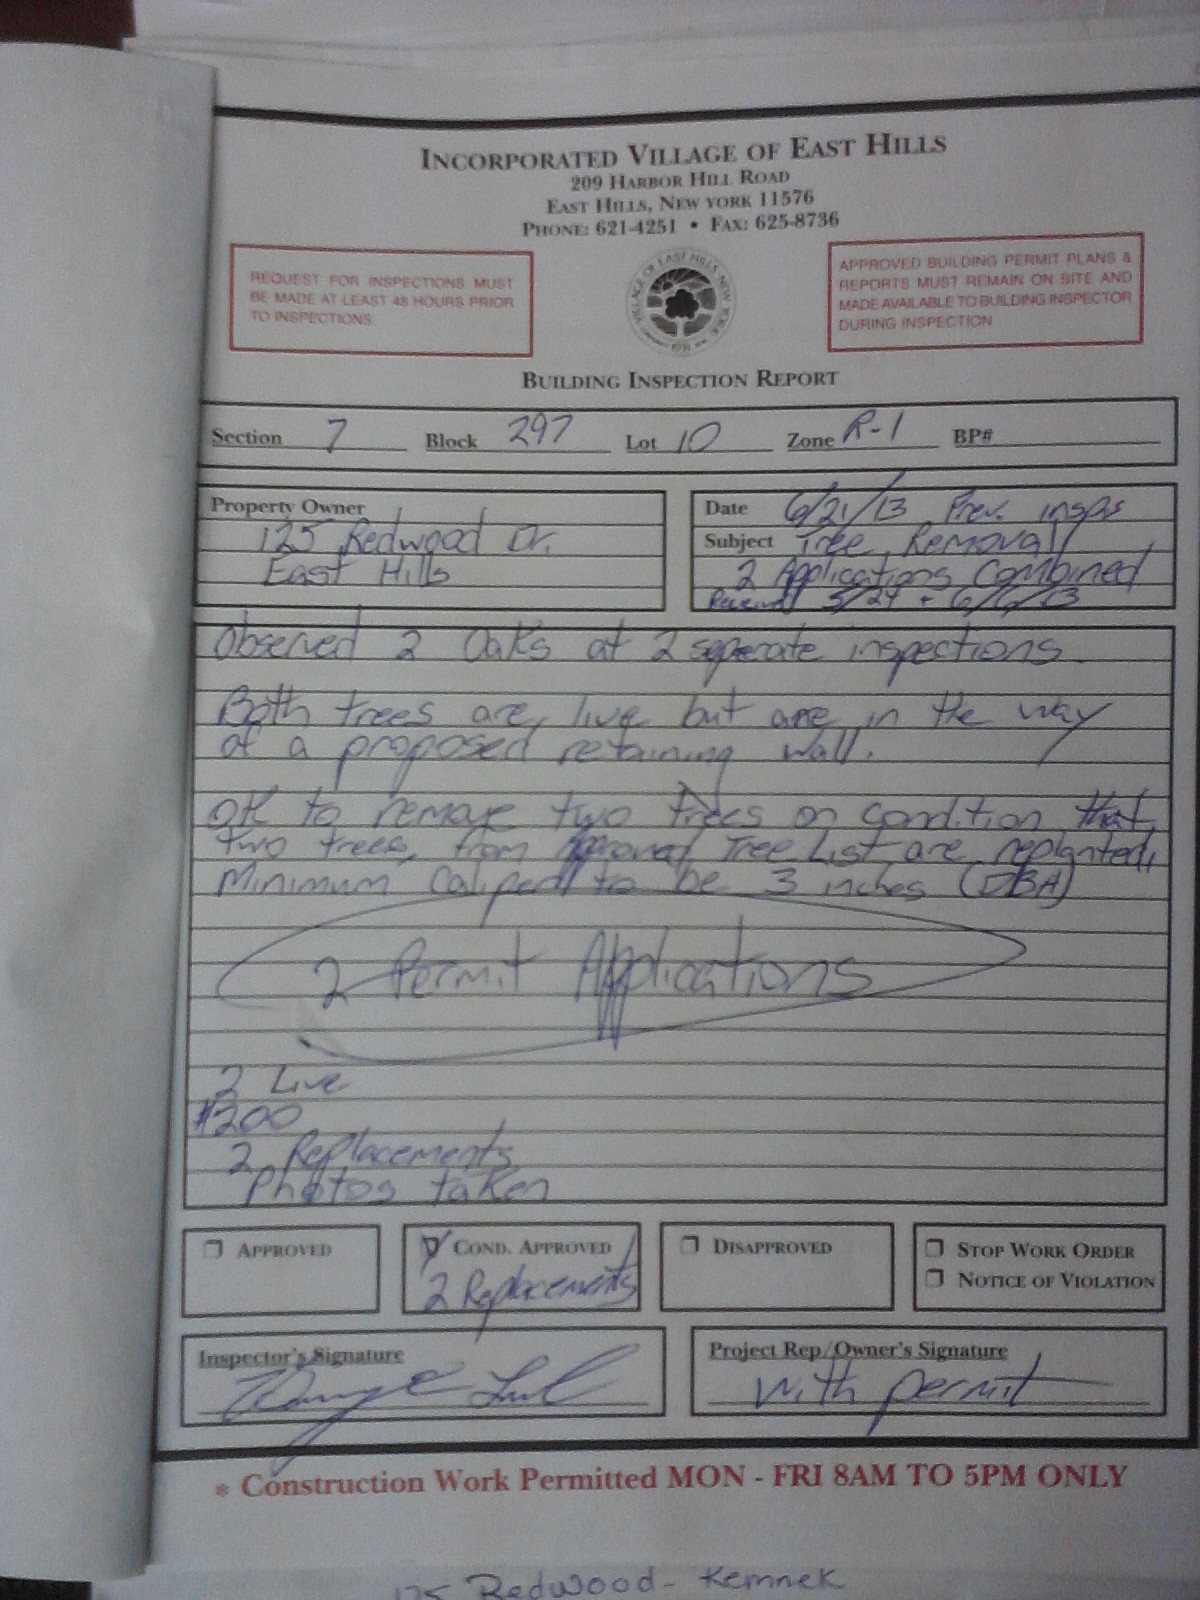 INCORPORATED VILLAGE OF EAST HILLS
209 HARBOR HILL ROAD
EAST HILLS, NEW YORK 11576
PHONE: 621-4251 • FAX: 625-8736
REQUEST FOR INSPECTIONS MUST
BE MADE AT LEAST 48 HOURS PRIOR
TO INSPECTIONS.
VILLAGE OF EAST HILLS NEW YORK
1931
APPROVED BUILDING PERMIT PLANS &
REPORTS MUST REMAIN ON SITE AND
MADE AVAILABLE TO BUILDING INSPECTOR
DURING INSPECTION
BUILDING INSPECTION REPORT
Section 7 Block 297 Lot 10 Zone R-1 BP#
Property Owner
125 Redwood Dr.
East Hills
Date 6/21/13 Prev. insps
Subject Tree Removal
2 Applications Combined
Received 5/24 + 6/6/13
Observed 2 Oaks at 2 seperate inspections.
Both trees are live but are in the way
of a proposed retaining wall.
OK to remove two trees on condition that
two trees, from Approved Tree List are replanted,
Minimum Caliper to be 3 inches (DBH)
2 Permit Applications
2 Live
$200
2 Replacements
Photos taken
APPROVED
COND. APPROVED
2 Replacements
DISAPPROVED
STOP WORK ORDER
NOTICE OF VIOLATION
Inspector's Signature
Project Rep/Owner's Signature
with permit
* Construction Work Permitted MON - FRI 8AM TO 5PM ONLY
125 Redwood - Kemnek